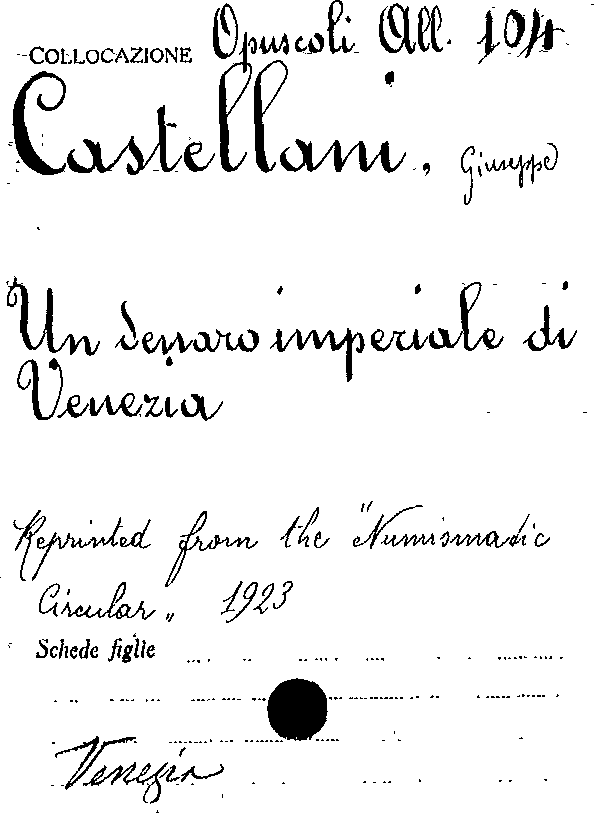 COLLOCAZIONE Opuscoli All. 104
Castellani, Giuseppe
Un denaro imperiale di
Venezia
Reprinted from the "Numismatic
Circular" 1923
Schede figlie
Venezia